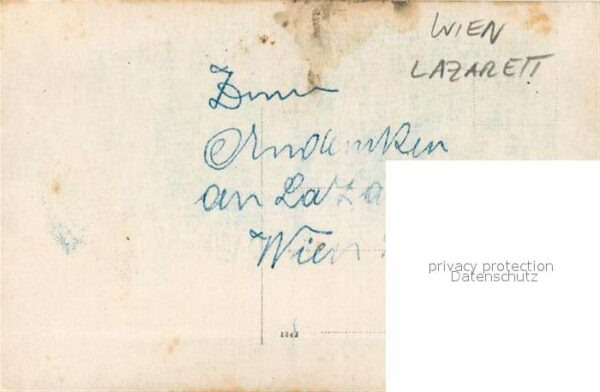 WIEN
LAZARETT
Zum
Andenken
an Laza
Wien
privacy protection
Datenschutz